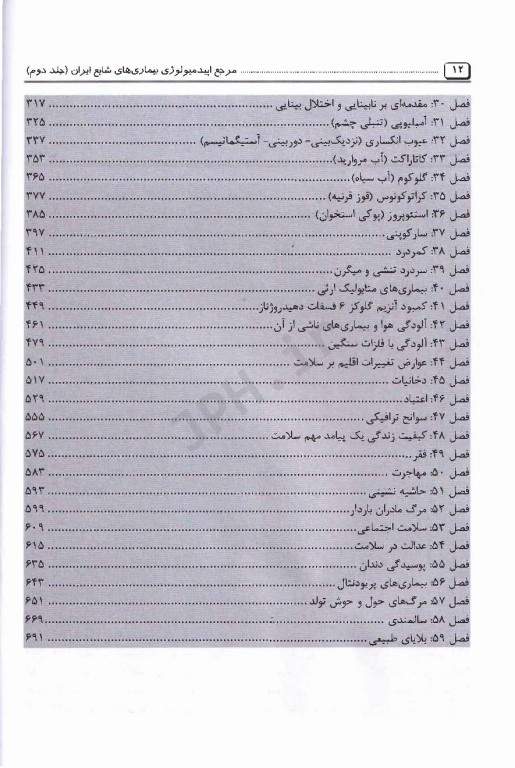 ۱۲ ........ مرجع اپیدمیولوژی بیماری‌های شایع ایران (جلد دوم)
فصل ۳۰: مقدمه‌ای بر نابینایی و اختلال بینایی ........ ۳۱۷
فصل ۳۱: آمبلیوپی (تنبلی چشم) ........ ۳۲۵
فصل ۳۲: عیوب انکساری (نزدیک‌بینی- دوربینی- آستیگماتیسم) ........ ۳۳۷
فصل ۳۳: کاتاراکت (آب مروارید) ........ ۳۵۳
فصل ۳۴: گلوکوم (آب سیاه) ........ ۳۶۵
فصل ۳۵: کراتوکونوس (قوز قرنیه) ........ ۳۷۷
فصل ۳۶: استئوپروز (پوکی استخوان) ........ ۳۸۵
فصل ۳۷: سارکوپنی ........ ۳۹۷
فصل ۳۸: کمردرد ........ ۴۱۱
فصل ۳۹: سردرد تنشی و میگرن ........ ۴۲۵
فصل ۴۰: بیماری‌های متابولیک ارثی ........ ۴۳۳
فصل ۴۱: کمبود آنزیم گلوکز ۶ فسفات دهیدروژناز ........ ۴۴۹
فصل ۴۲: آلودگی هوا و بیماری‌های ناشی از آن ........ ۴۶۱
فصل ۴۳: آلودگی با فلزات سنگین ........ ۴۷۹
فصل ۴۴: عوارض تغییرات اقلیم بر سلامت ........ ۵۰۱
فصل ۴۵: دخانیات ........ ۵۱۷
فصل ۴۶: اعتیاد ........ ۵۲۹
فصل ۴۷: سوانح ترافیکی ........ ۵۵۵
فصل ۴۸: کیفیت زندگی یک پیامد مهم سلامت ........ ۵۶۷
فصل ۴۹: فقر ........ ۵۷۵
فصل ۵۰: مهاجرت ........ ۵۸۳
فصل ۵۱: حاشیه نشینی ........ ۵۹۳
فصل ۵۲: مرگ مادران باردار ........ ۵۹۹
فصل ۵۳: سلامت اجتماعی ........ ۶۰۹
فصل ۵۴: عدالت در سلامت ........ ۶۱۵
فصل ۵۵: پوسیدگی دندان ........ ۶۳۵
فصل ۵۶: بیماری‌های پریودنتال ........ ۶۴۳
فصل ۵۷: مرگ‌های حول و حوش تولد ........ ۶۵۱
فصل ۵۸: سالمندی ........ ۶۶۹
فصل ۵۹: بلایای طبیعی ........ ۶۹۱
JPH.ir